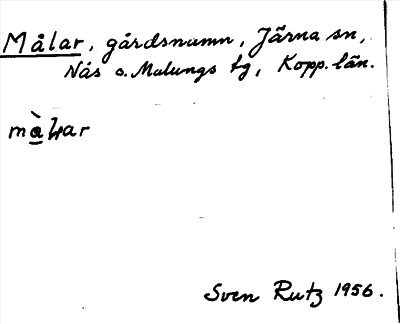 Målar, gårdsnamn, Järna sn,
Nås o. Malungs tg, Kopp. län.
mà̱ɽar
Sven Rutz 1956.